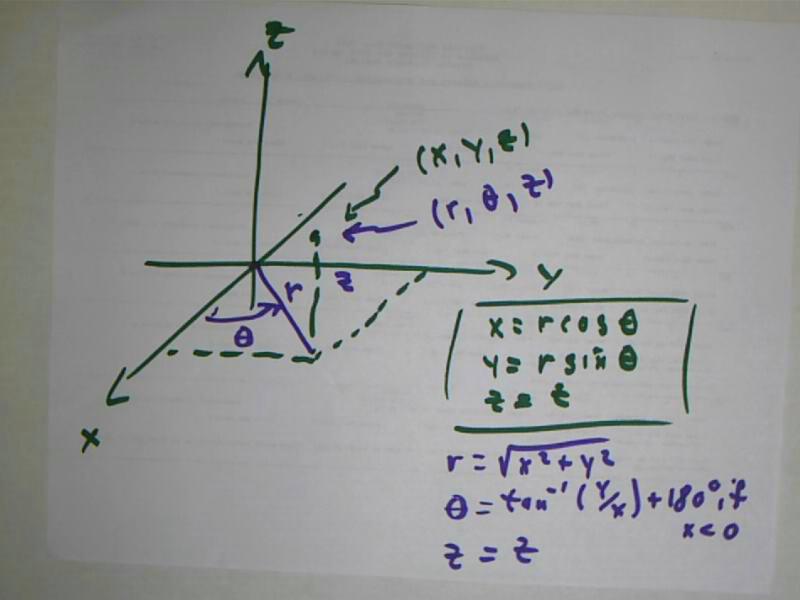 z
(x, y, z)
(r, θ, z)
y
r
z
θ
x
x = r cos θ
y = r sin θ
z = z
r = √x² + y²
θ = tan⁻¹ (y/x) + 180°, if
x < 0
z = z